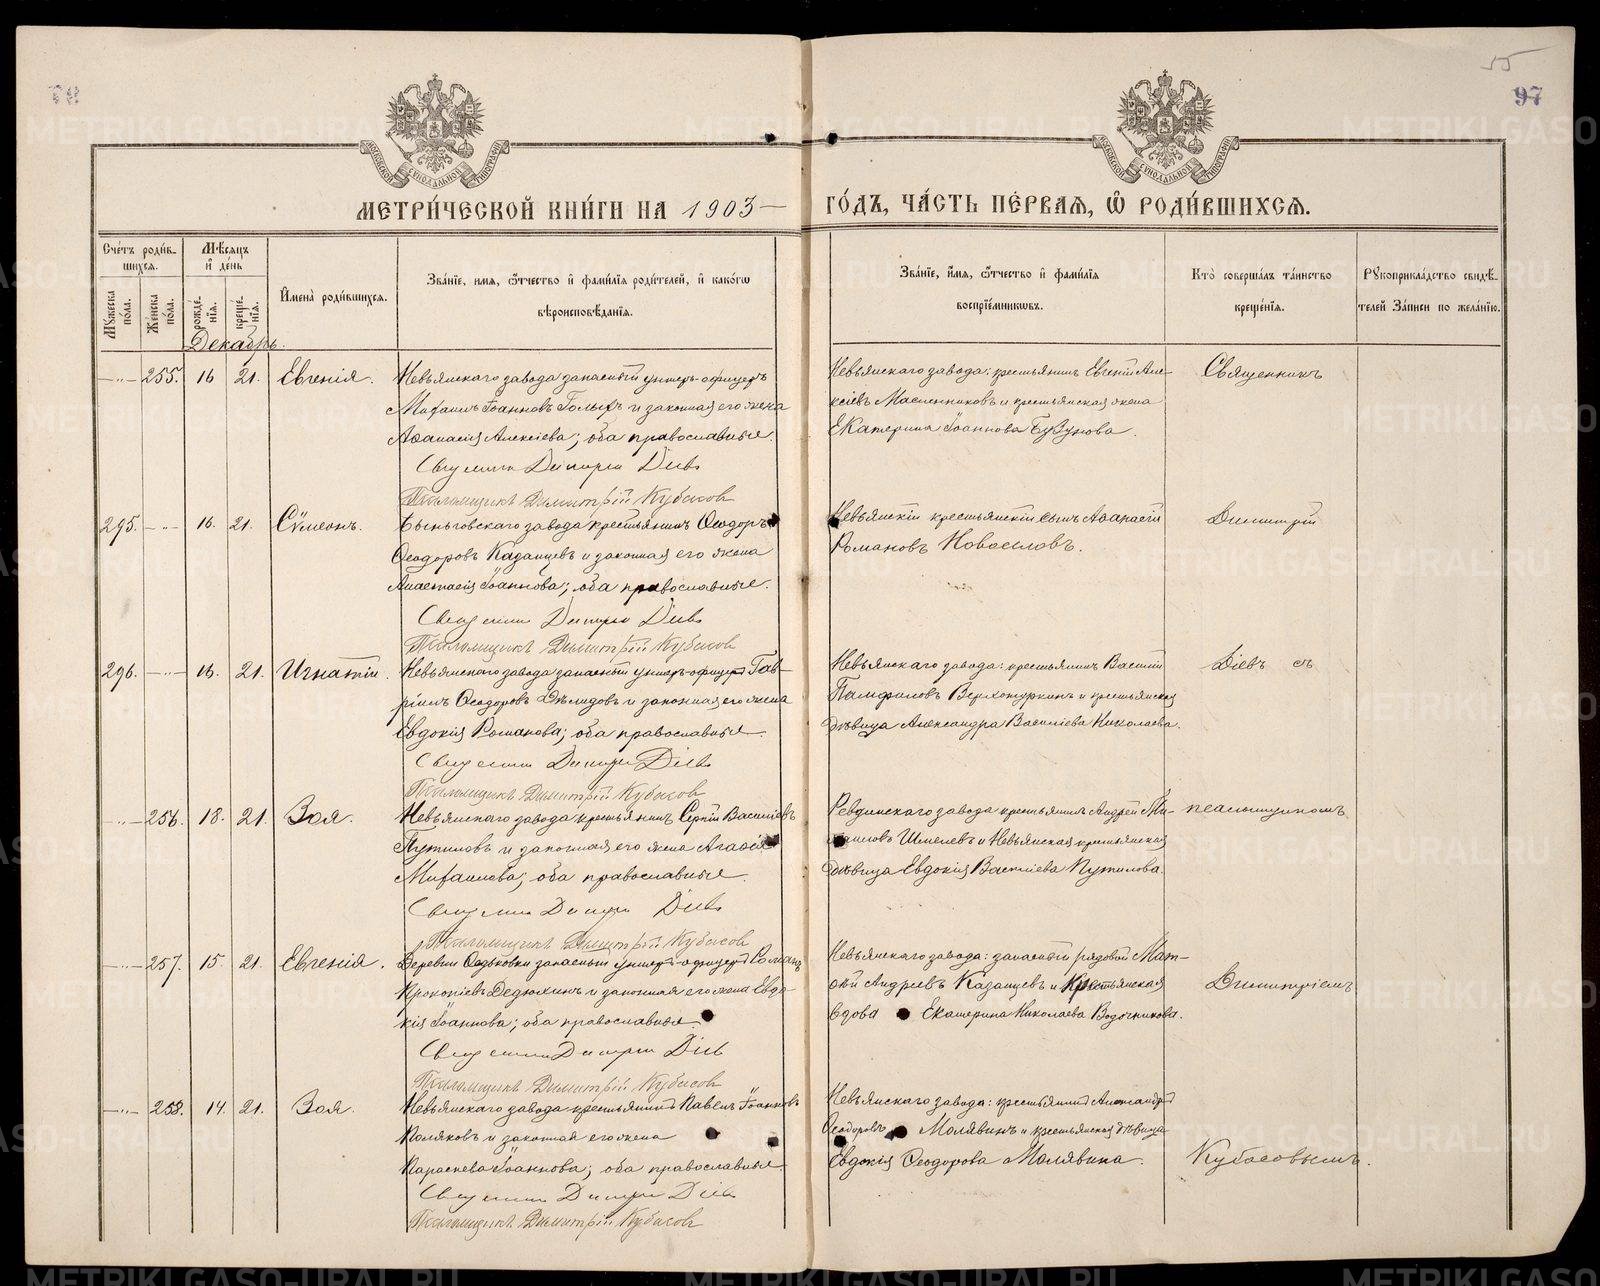 55
97
МЕТРИЧЕСКОЙ КНИГИ НА 1903 ГОДЪ, ЧАСТЬ ПЕРВАЯ, Ѡ РОДИВШИХСЯ.
Счетъ родившихся.
Мужеска пола.
Женска пола.
Мѣсяцъ и день
рожденія.
крещенія.
Имена родившихся.
Званіе, имя, ѿчество и фамилія родителей, и какогѡ вѣроисповѣданія.
Званіе, имя, ѿчество и фамилія воспріемникѡвъ.
Кто совершалъ таинство крещенія.
Рукоприкладство свидѣтелей записи по желанію.
Декабрь.
255. 16 21. Евгенія.
Невьянскаго завода запасный унтеръ-офицеръ
Михаилъ Іоанновъ Голыхъ и законная его жена
Аѳанасія Алексіева; оба православные.
Димитрій Діевъ
Псаломщикъ Димитрій Кубасовъ
Невьянскаго завода: крестьянинъ Евгеній Але-
ксіевъ Масленниковъ и крестьянская жена
Екатерина Іоаннова Бузунова.
Священникъ
295. 16. 21. Сѷмеонъ.
Быньговскаго завода крестьянинъ Ѳеодоръ
Ѳеодоровъ Казанцевъ и законная его жена
Анастасія Іоаннова; оба православные.
Димитрій Діевъ
Псаломщикъ Димитрій Кубасовъ
Невьянскій крестьянскій сынъ Аѳанасій
Романовъ Новоселовъ.
Димитрій
296. 16. 21. Игнатій.
Невьянскаго завода запасный унтеръ-офицеръ Гав-
ріилъ Ѳеодоровъ Демидовъ и законная его жена
Евдокія Романова; оба православные.
Димитрій Діевъ
Псаломщикъ Димитрій Кубасовъ
Невьянскаго завода: крестьянинъ Василій
Памфиловъ Верхотуркинъ и крестьянская
дѣвица Александра Василіева Николаева.
Діевъ съ
256. 18. 21. Зоя.
Невьянскаго завода крестьянинъ Сергій Василіевъ
Путиловъ и законная его жена Агаѳія
Михаилова; оба православные.
Димитрій Діевъ
Псаломщикъ Димитрій Кубасовъ
Ревдинскаго завода крестьянинъ Андрей Ми-
хаиловъ Шмелевъ и Невьянская крестьянская
дѣвица Евдокія Василіева Путилова.
псаломщикомъ
257. 15. 21. Евгенія.
Деревни Ѳедьковки запасный унтеръ-офицеръ Романъ
Прокопіевъ Дедюхинъ и законная его жена Евдо-
кія Іоаннова; оба православные.
Димитрій Діевъ
Псаломщикъ Димитрій Кубасовъ
Невьянскаго завода: запасный рядовой Мат-
ѳій Андреевъ Казанцевъ и крестьянская
вдова Екатерина Николаева Водочникова.
Димитріемъ
258. 14. 21. Зоя.
Невьянскаго завода крестьянинъ Павелъ Іоанновъ
Поляковъ и законная его жена
Параскева Іоаннова; оба православные.
Димитрій Діевъ
Псаломщикъ Димитрій Кубасовъ
Невьянскаго завода: крестьянинъ Александръ
Ѳеодоровъ Молявинъ и крестьянская дѣвица
Евдокія Ѳеодорова Молявина.
Кубасовымъ.
METRIKI.GASO-URAL.RU